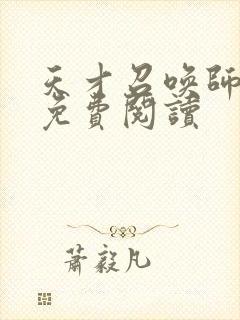 天才召喚師
免費閱讀
蕭毅凡